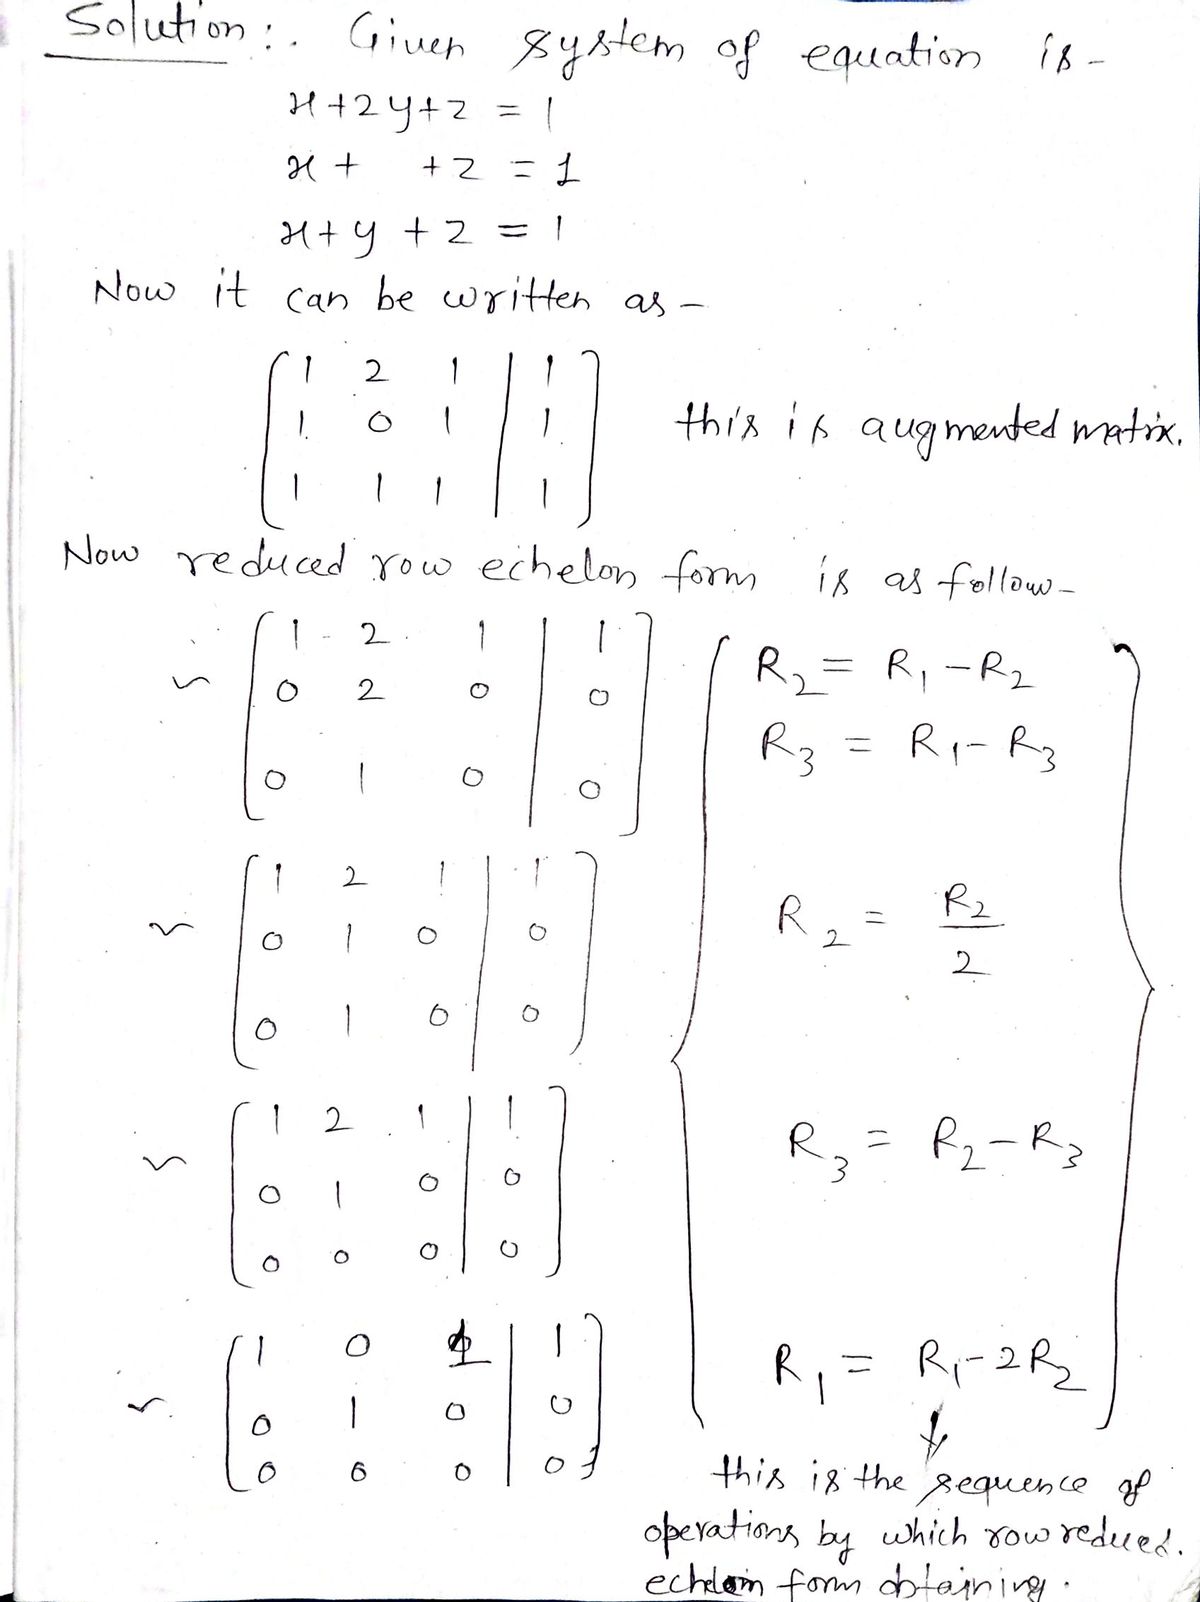 Solution :. Given system of equation is -
x + 2y + z = 1
x +   + z = 1
x + y + z = 1
Now it can be written as -
[ 1 2 1 | 1 ]
[ 1 0 1 | 1 ] this is augmented matrix.
[ 1 1 1 | 1 ]
Now reduced row echelon form is as follow -
~ [ 1 2 1 | 1 ] R₂ = R₁ - R₂
[ 0 2 0 | 0 ] R₃ = R₁ - R₃
[ 0 1 0 | 0 ]
~ [ 1 2 1 | 1 ]
[ 0 1 0 | 0 ] R₂ = R₂/2
[ 0 1 0 | 0 ]
~ [ 1 2 1 | 1 ]
[ 0 1 0 | 0 ] R₃ = R₂ - R₃
[ 0 0 0 | 0 ]
~ [ 1 0 1 | 1 ] R₁ = R₁ - 2R₂
[ 0 1 0 | 0 ]
[ 0 0 0 | 0 ]
this is the sequence of
operations by which row reduced.
echeloin form obtaining.